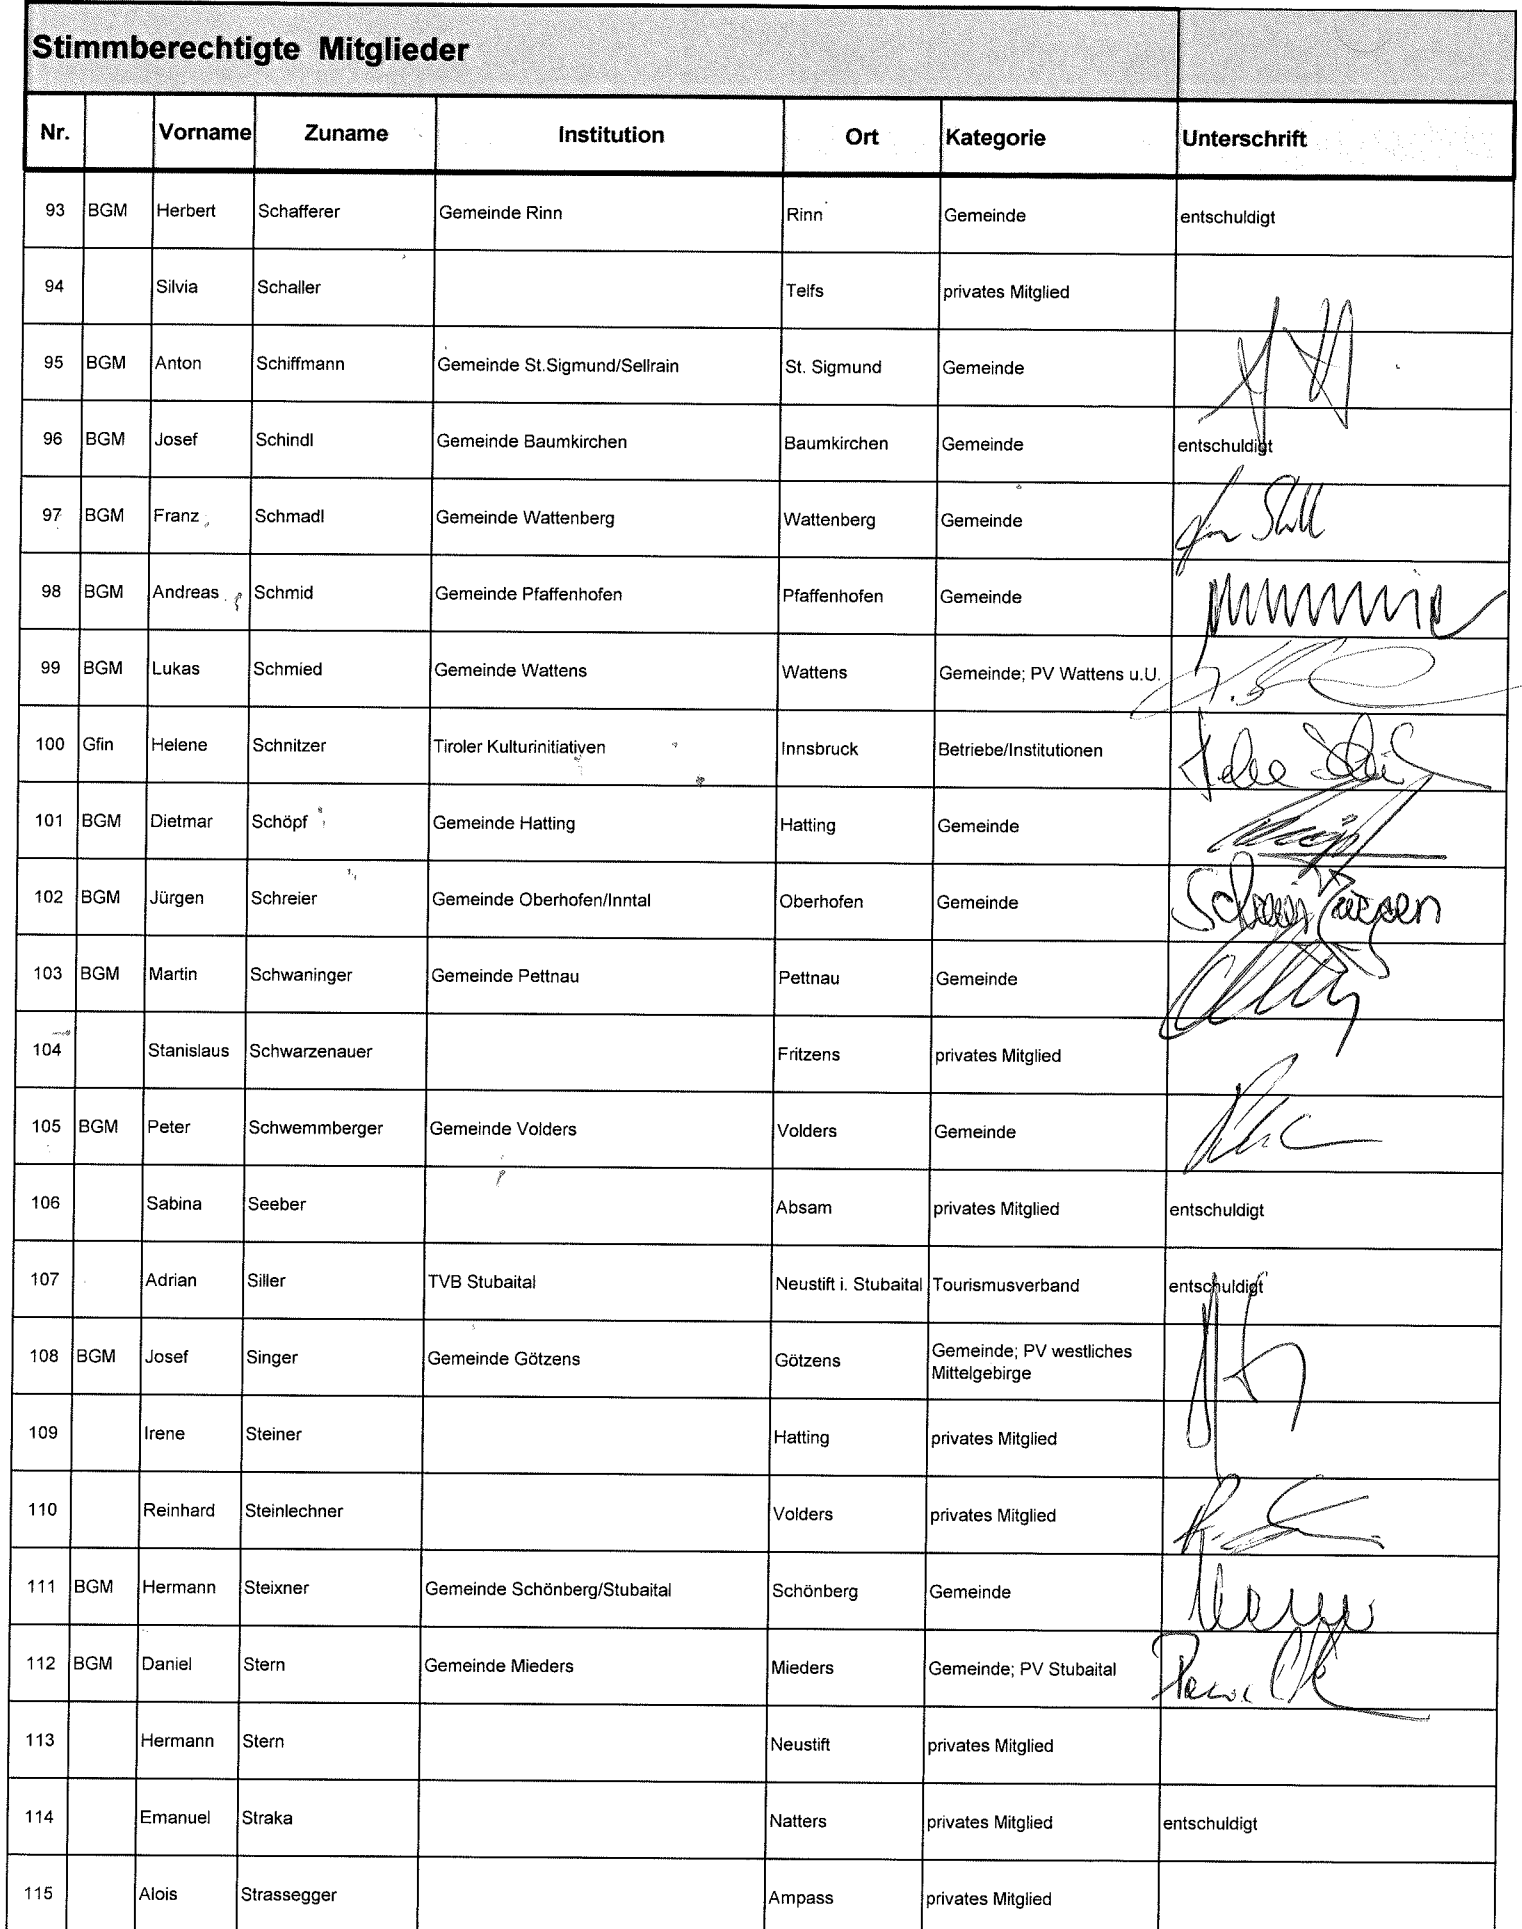 Stimmberechtigte Mitglieder
Nr. Vorname Zuname Institution Ort Kategorie Unterschrift
93 BGM Herbert Schafferer Gemeinde Rinn Rinn Gemeinde entschuldigt
94 Silvia Schaller Telfs privates Mitglied
95 BGM Anton Schiffmann Gemeinde St.Sigmund/Sellrain St. Sigmund Gemeinde
96 BGM Josef Schindl Gemeinde Baumkirchen Baumkirchen Gemeinde entschuldigt
97 BGM Franz Schmadl Gemeinde Wattenberg Wattenberg Gemeinde
98 BGM Andreas Schmid Gemeinde Pfaffenhofen Pfaffenhofen Gemeinde
99 BGM Lukas Schmied Gemeinde Wattens Wattens Gemeinde; PV Wattens u.U.
100 Gfin Helene Schnitzer Tiroler Kulturinitiativen Innsbruck Betriebe/Institutionen
101 BGM Dietmar Schöpf Gemeinde Hatting Hatting Gemeinde
102 BGM Jürgen Schreier Gemeinde Oberhofen/Inntal Oberhofen Gemeinde
103 BGM Martin Schwaninger Gemeinde Pettnau Pettnau Gemeinde
104 Stanislaus Schwarzenauer Fritzens privates Mitglied
105 BGM Peter Schwemmberger Gemeinde Volders Volders Gemeinde
106 Sabina Seeber Absam privates Mitglied entschuldigt
107 Adrian Siller TVB Stubaital Neustift i. Stubaital Tourismusverband entschuldigt
108 BGM Josef Singer Gemeinde Götzens Götzens Gemeinde; PV westliches
Mittelgebirge
109 Irene Steiner Hatting privates Mitglied
110 Reinhard Steinlechner Volders privates Mitglied
111 BGM Hermann Steixner Gemeinde Schönberg/Stubaital Schönberg Gemeinde
112 BGM Daniel Stern Gemeinde Mieders Mieders Gemeinde; PV Stubaital
113 Hermann Stern Neustift privates Mitglied
114 Emanuel Straka Natters privates Mitglied entschuldigt
115 Alois Strassegger Ampass privates Mitglied